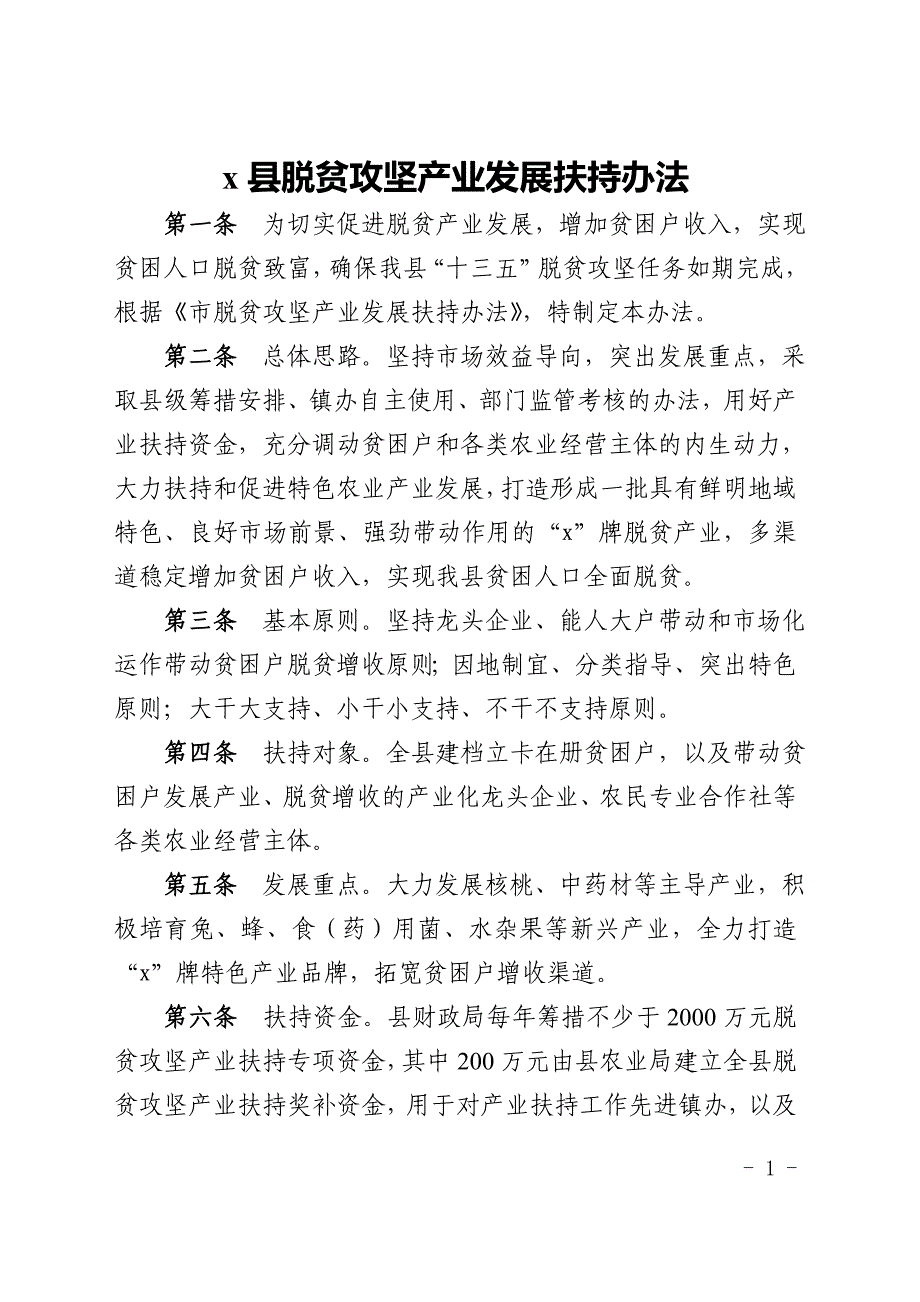 x 县脱贫攻坚产业发展扶持办法
第一条　为切实促进脱贫产业发展，增加贫困户收入，实现
贫困人口脱贫致富，确保我县“十三五”脱贫攻坚任务如期完成，
根据《市脱贫攻坚产业发展扶持办法》，特制定本办法。
第二条　总体思路。坚持市场效益导向，突出发展重点，采
取县级筹措安排、镇办自主使用、部门监管考核的办法，用好产
业扶持资金，充分调动贫困户和各类农业经营主体的内生动力，
大力扶持和促进特色农业产业发展，打造形成一批具有鲜明地域
特色、良好市场前景、强劲带动作用的“x”牌脱贫产业，多渠
道稳定增加贫困户收入，实现我县贫困人口全面脱贫。
第三条　基本原则。坚持龙头企业、能人大户带动和市场化
运作带动贫困户脱贫增收原则；因地制宜、分类指导、突出特色
原则；大干大支持、小干小支持、不干不支持原则。
第四条　扶持对象。全县建档立卡在册贫困户，以及带动贫
困户发展产业、脱贫增收的产业化龙头企业、农民专业合作社等
各类农业经营主体。
第五条　发展重点。大力发展核桃、中药材等主导产业，积
极培育兔、蜂、食（药）用菌、水杂果等新兴产业，全力打造
“x”牌特色产业品牌，拓宽贫困户增收渠道。
第六条　扶持资金。县财政局每年筹措不少于 2000 万元脱
贫攻坚产业扶持专项资金，其中 200 万元由县农业局建立全县脱
贫攻坚产业扶持奖补资金，用于对产业扶持工作先进镇办，以及
- 1 -